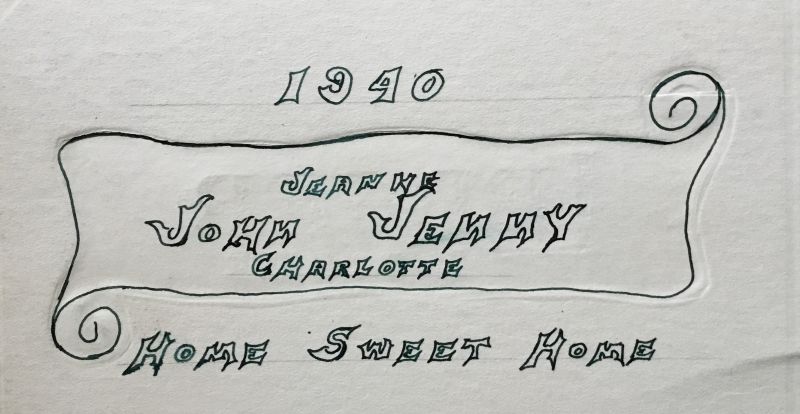 1940
JEANNE
JOHN JENNY
CHARLOTTE
HOME SWEET HOME